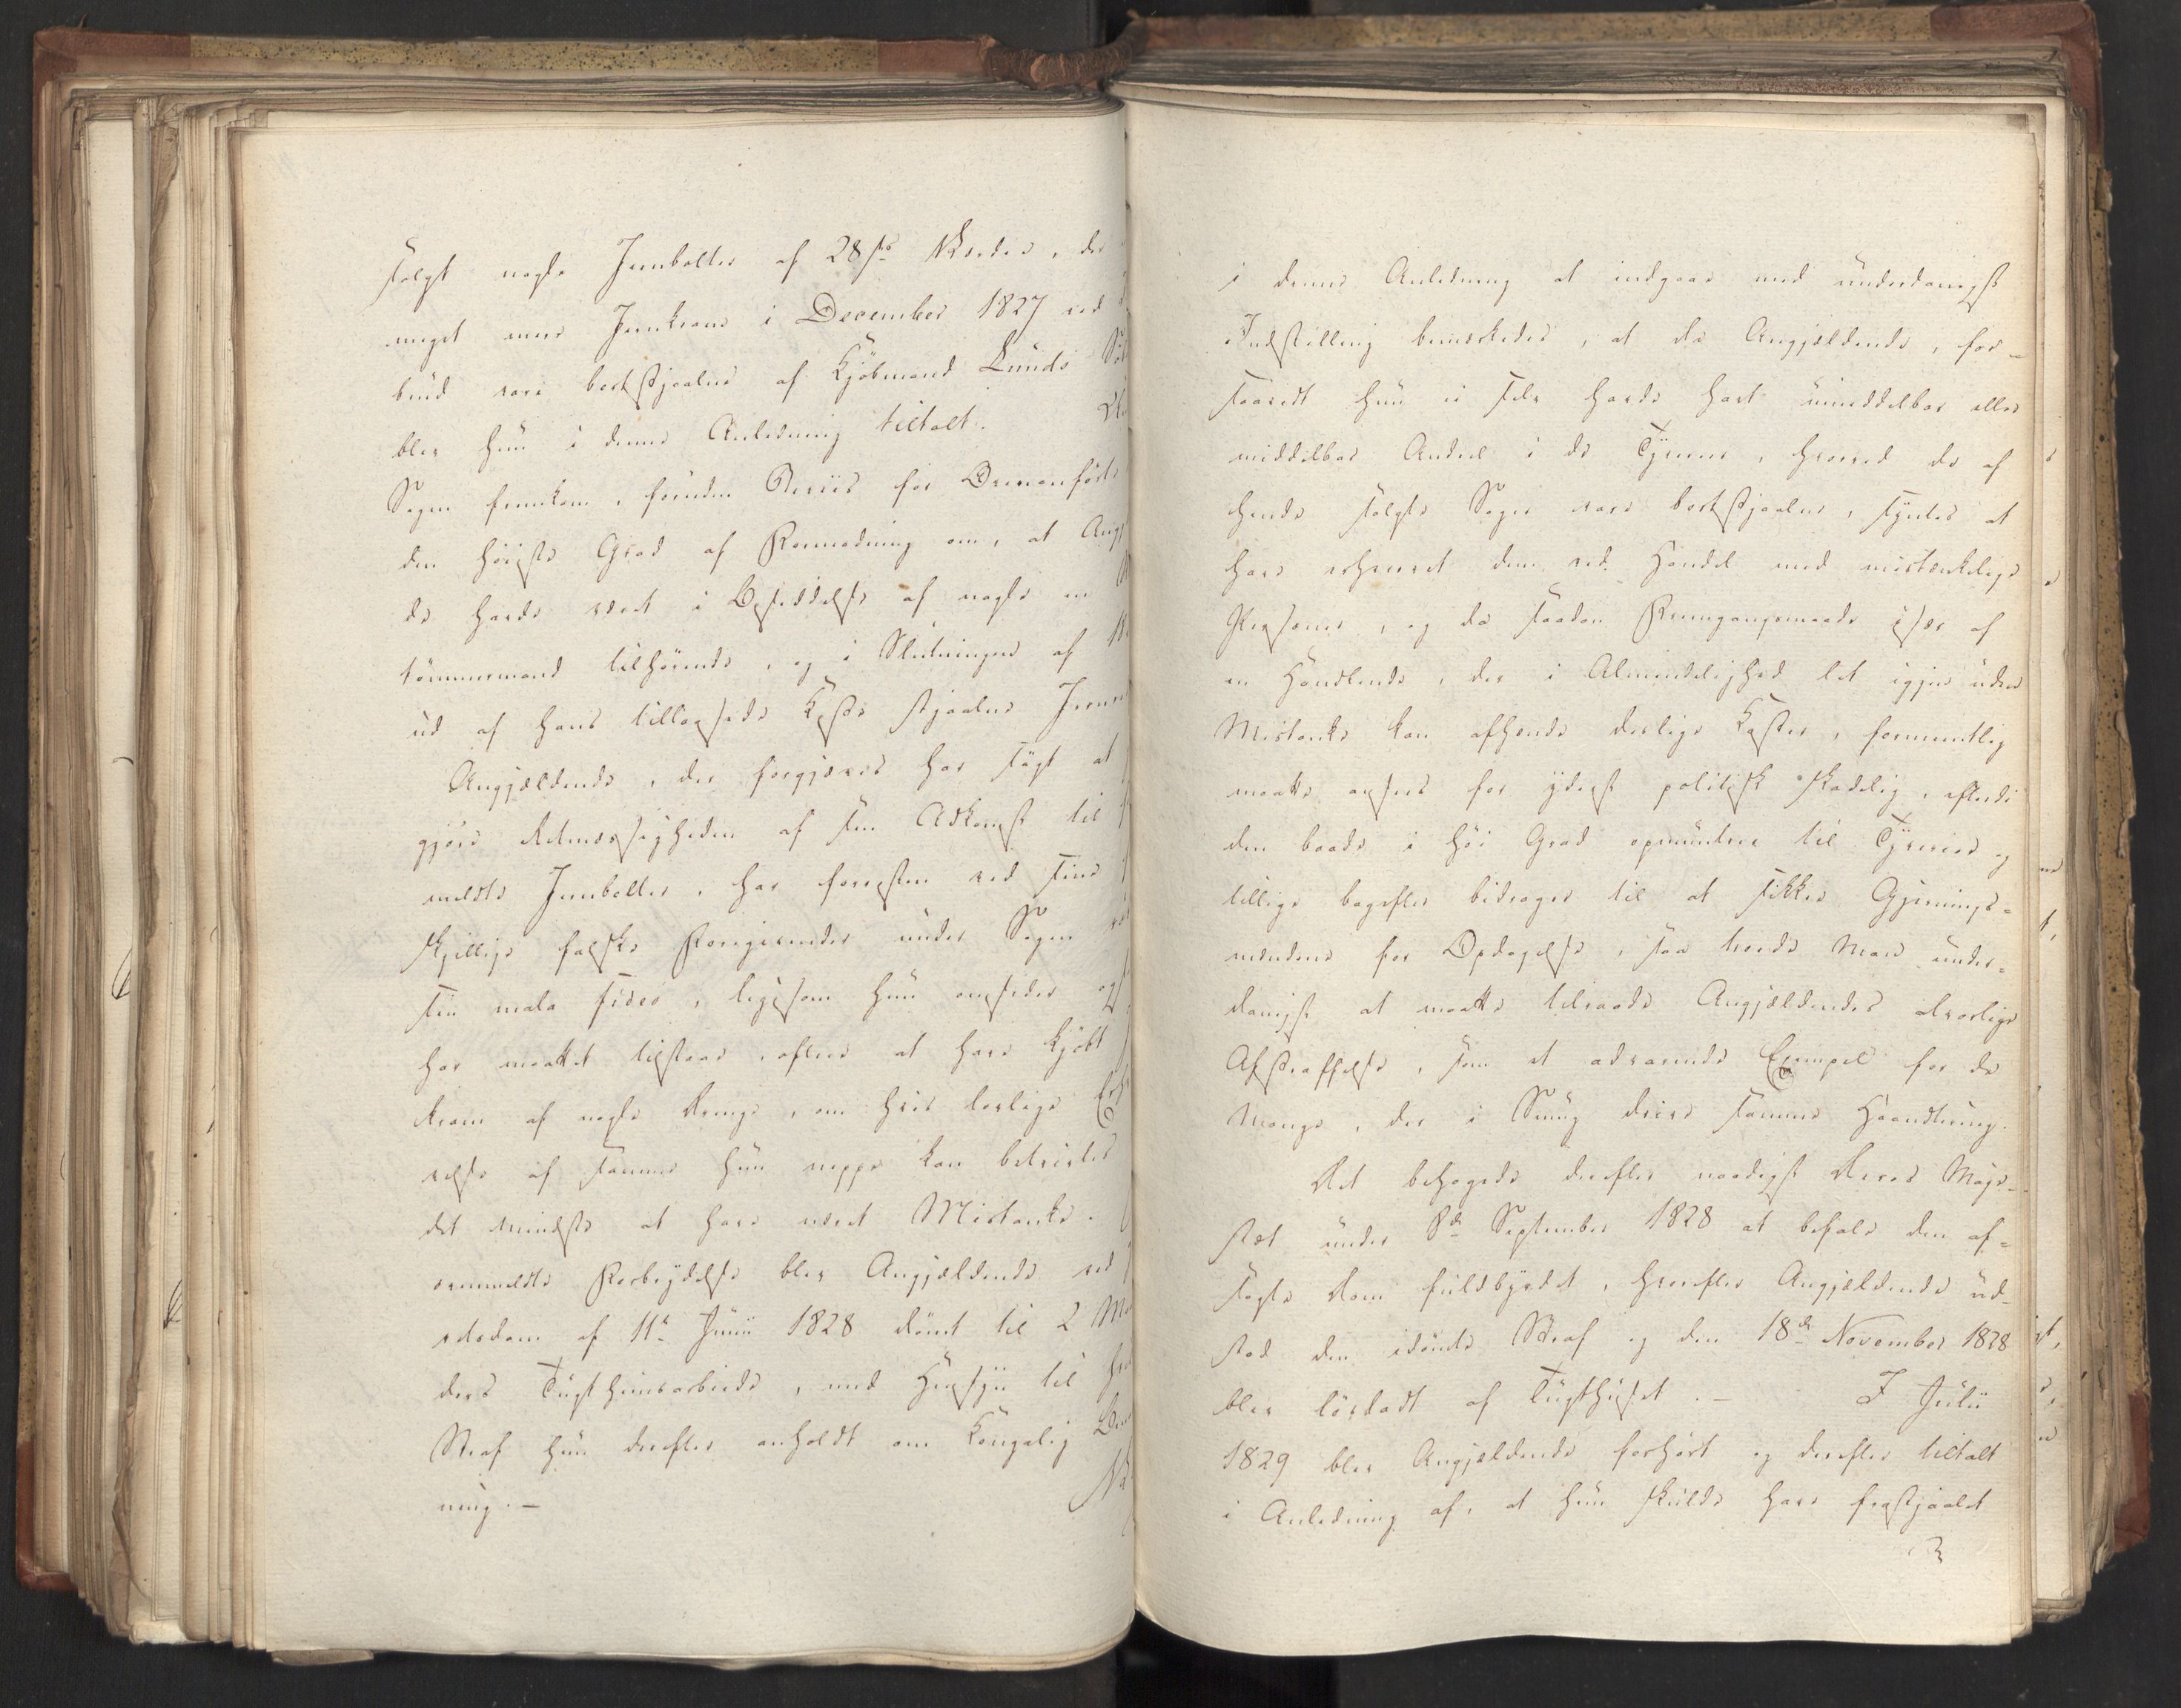 solgt nogle Jernbolter af 28 sk Værdie, der
meget mere Jernkram i December 1827 ved
bud vare bortstjaalne af Kjöbmand Lunds
blev hun i denne Anledning tiltalt.
Sagen fremkom, foruden Beviis for Ovenanförte
den höieste Grad af Formodning om, at Ang
de havde været i Besiddelse af nogle en
tömmermand tilhörende, og i Slutningen af
ud af hans tillaasede Kiste stjaalne Jern
Angjældende, der forgjæves har sögt at
gjöre Retmæssigheden af sin Adkomst til
meldte Jernbolter, har foresten ved sine
skjellige falske Foregivender under Sagen
sin mala fides, ligesom hun omsider og
har maattet tilstaae, oftere at have kjöbt
kram af nogle Drenge, om hvis lovlige
velse af samme hun neppe kan betvivles
det mindste at have næret Mistanke.
ovenmeldte Forbrydelse blev Angjældende ved
retsdom af 11te Junii 1828 dömt til 2
ders Tugthuusarbeide, med Hensyn til
Straf hun derefter anholdt om Kongelig
ning. —
i denne Anledning at indgaae med underdanigst
Indstilling bemærkedes, at da Angjældende, for-
saavidt hun ei selv havde havt umiddelbar eller
middelbar Andeel i de Tyverier, hvorved de af
hende solgte Sager vare bortstjaalne, syntes at
have erhvervet dem ved Handel med mistænkelige
Personer, og da saadan Fremgangsmaade især af
en Handlende, der i Almindelighed let igjen uden
Mistanke kan afhænde deslige Koster, formeentlig
maatte ansees for yderst politisk skadelig, efterdi
den baade i höi Grad opmuntrer til Tyverier og
tillige bagefter bidrager til at sikkre Gjernings-
mændene for Opdagelse, saa troede Man under-
danigst at maatte tilraade Angjældendes alvorlige
Afstraffelse, som et advarende Exempel for de
Mange, der i Smug drive samme Haandtering.
Det behagede derefter naadigst Deres Maje-
stæt under 8de September 1828 at befale den af-
sagte Dom fuldbyrdet, hvorefter Angjældende ud-
stod den idömte Straf og den 18de November 1828
blev lösladt af Tugthuset. — I Julii
1829 blev Angjældende forhört og derefter tiltalt
i Anledning af, at hun skulde have frastjaalet